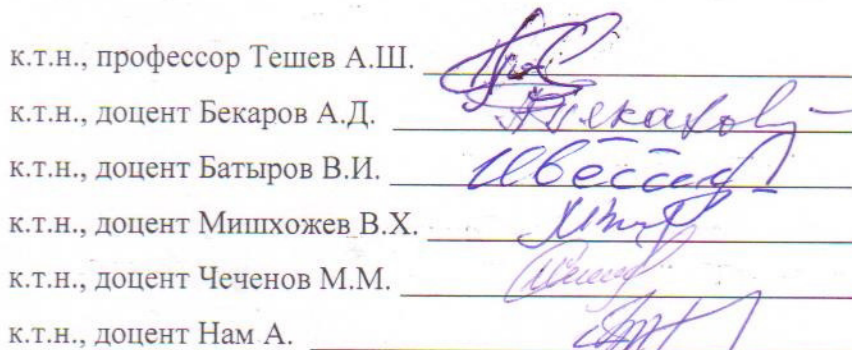 к.т.н., профессор Тешев А.Ш.
к.т.н., доцент Бекаров А.Д.
к.т.н., доцент Батыров В.И.
к.т.н., доцент Мишхожев В.Х.
к.т.н., доцент Чеченов М.М.
к.т.н., доцент Нам А.